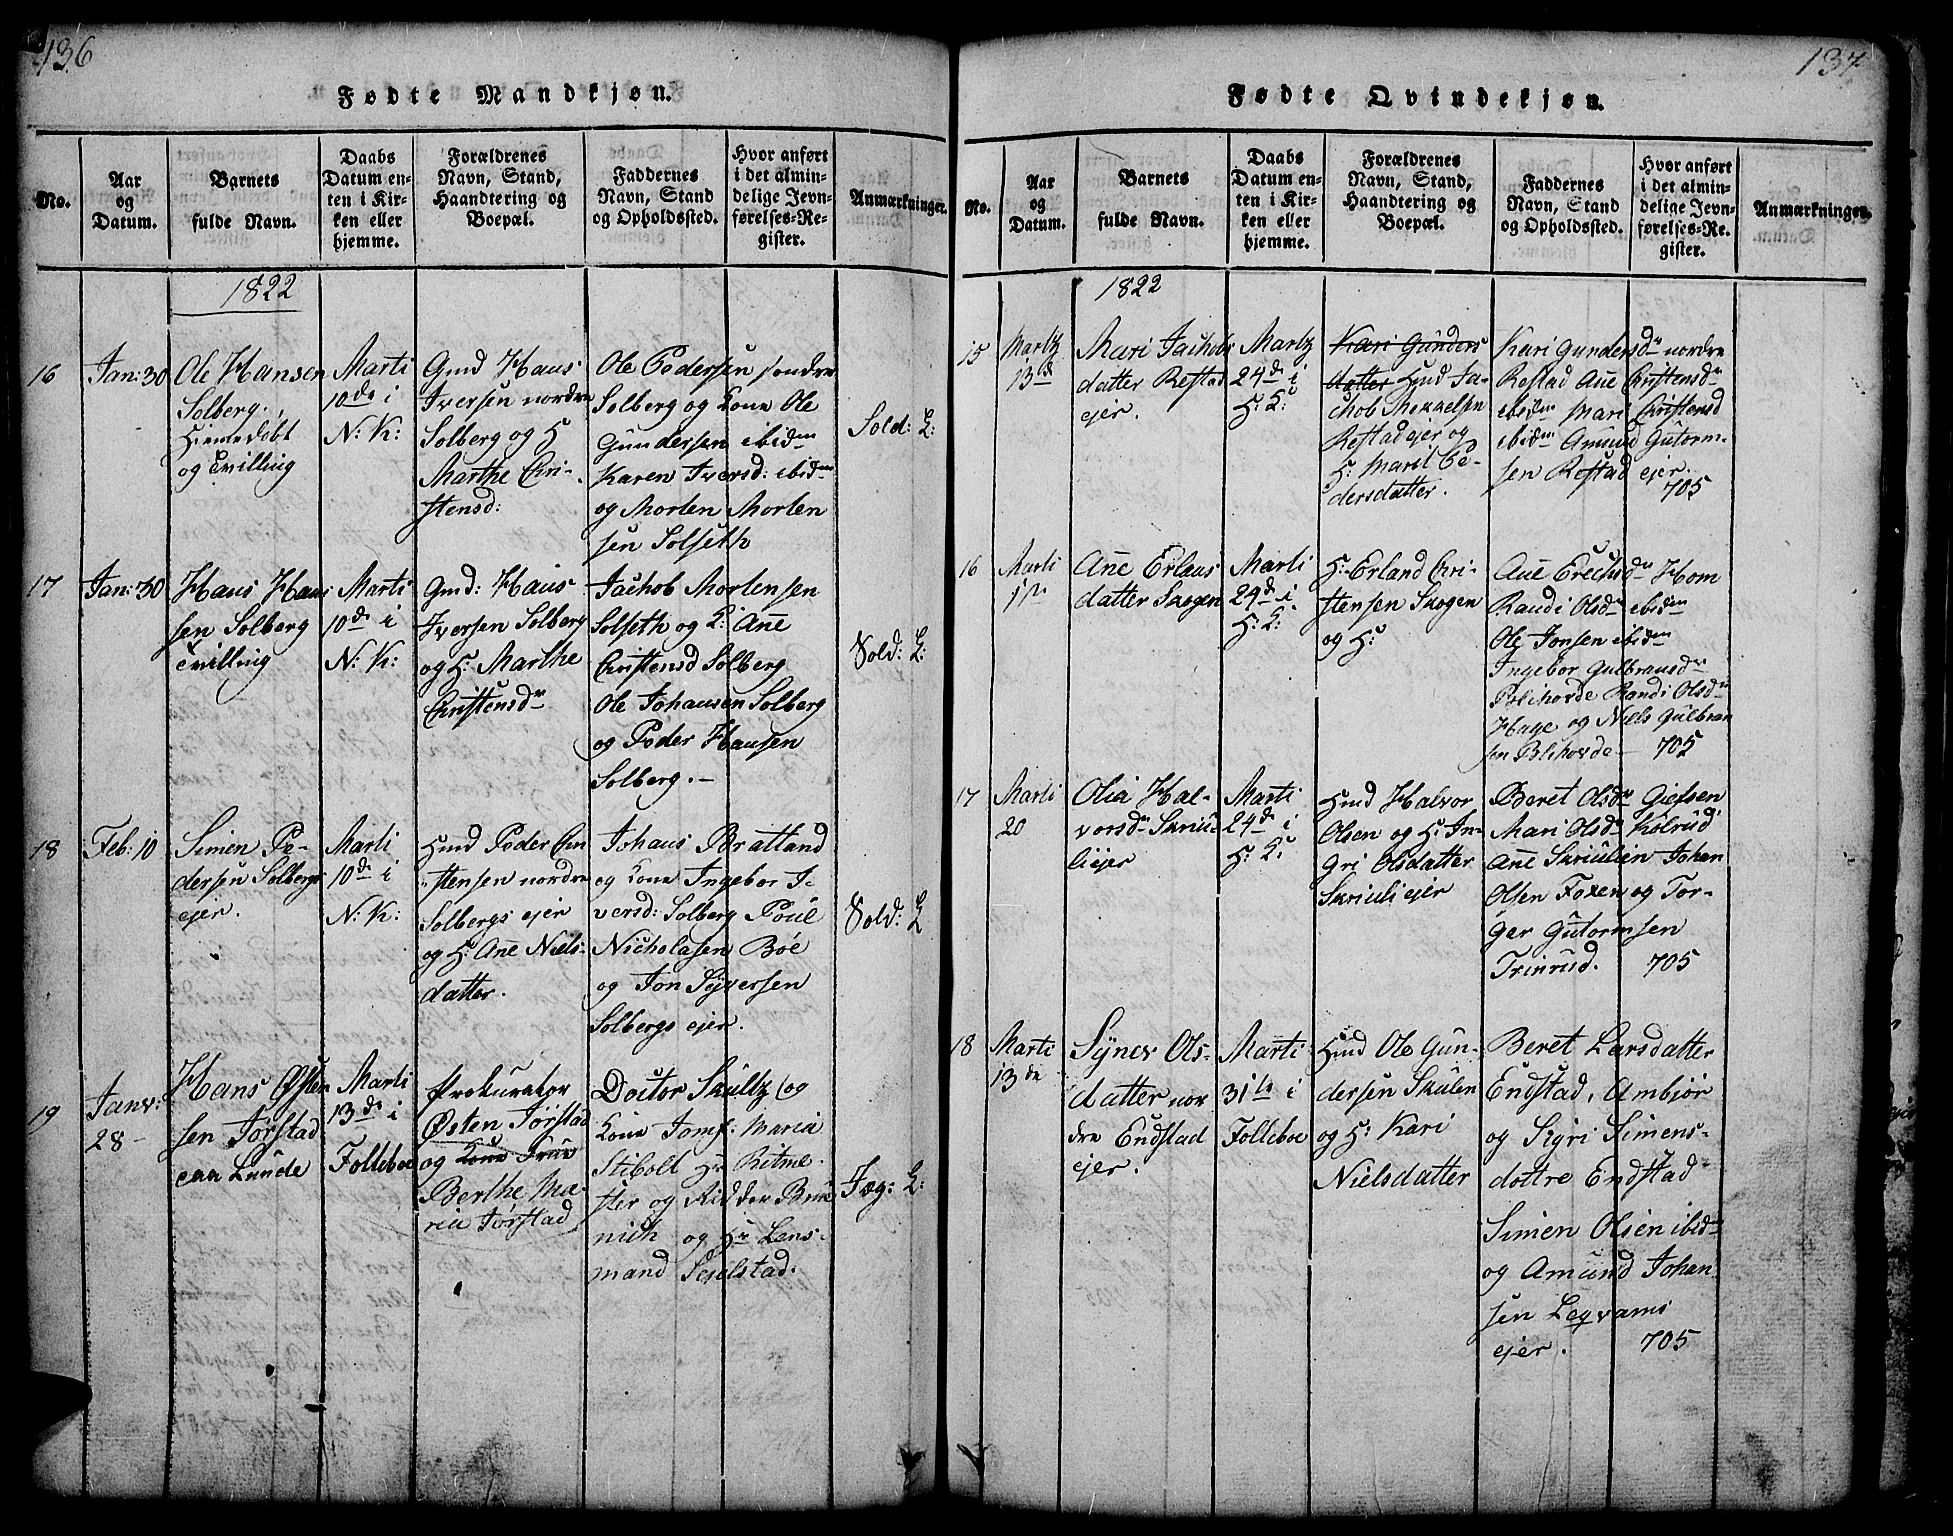 136
Fødte Mandkjøn.
No.
Aar
og
Datum.
Barnets
fulde Navn.
Daabs
Datum en-
ten i Kir-
ken eller
hjemme.
Forældrenes
Navn, Stand,
Haandtering og
Boepæl.
Faddernes
Navn, Stand
og Opholdssted.
Hvor anført
i det almin-
delige Jevn-
førelses-Re-
gister.
Anmærkninger.
1822
16
Jan: 30
Ole Hansen
Solberg.,
Hiemedøbt
og Tvilling
Marti
10de i
N: K:
Gmd Hans
Iversen nordre
Solberg og H
Marthe Chri-
stensd:
Ole Pedersen søndre
Solberg og Kone Ole
Gundersen ibidm
Karen Iversd: ibidm
og Morten Morten
sen Solseth
Sold: L:
17
Jan: 30
Hans Han
sen Solberg
Tvilling
Marti
10de i
N: K:
Gmd: Hans
Iversen Solberg
og H: Marthe
Christensdr
Jachob Mortensen
Solseth og K: Ane
Christensd Solberg
Ole Johansen Solberg
og Peder Hansen
Solberg.-
Sold: L:
18
Feb: 10
Simen Pe-
dersen Solbergs
ejer.
Marti
10de i
N: K:
Hmd Peder Chri
stensen nordre
Solbergs ejer
og H: Ane Niels-
datter.
Johans Bratland
og Kone Ingebor I-
versd: Solberg Poul
Nicholasen Böe
og Jon Syversen
Solbergs ejer.
Sold: L
19
Janv:
28-
Hans Østen
sen Jørstad
paa Lunde
Marti
13de i
Folleboe
Prokurator
Østen Jørstad
og Kone Frue
Berthe Ma-
ria Jørstad
Doctor Skultz og
Kone Jomf: Maria
Stibolt Hr Ritme-
ster og Ridder Brü
nich og Hr Lens-
mand Sejelstad.
Fog: L:
137
Fødte Qvindekjøn.
No.
Aar
og
Datum.
Barnets
fulde Navn.
Daabs
Datum en-
ten i Kir-
ken eller
hjemme.
Forældrenes
Navn, Stand,
Haandtering og
Boepæl.
Faddernes
Navn, Stand
og Opholdssted.
Hvor anført
i det almin-
delige Jevn-
førelses-Re-
gister.
Anmærkninger.
1822
15
Martz
13de
Mari Jachobs
datter Rofstad
ejer.
Martz
24de i
H: K:
Kari Gunders
datter Hmd Ja-
chob Mekkelsen
Rofstad ejer og
H: Marit Pe-
dersdatter.
Kari Gundersdr nordre
Rofstad Ane Christensdr
ibidm Mari Christensd
ibidm Amund Gutorm-
sen Rofstad ejer.
705
16
Marti
Ane Erlans
datter Skogen
Marti
24de i
H: K:
H: Erland Chri-
stensen Skogen
og H:
Randi Olsdr ibidm
Ole Jonsen ibidm
Ingebor Gulbransdr
Blihovde Randi Olsdr
Hage og Niels Gulbran
sen Blihovde - 705
17
Marti
20
Olia Hal-
vorsdr Skriu-
li ejer
Marti
24de i
H: K:
Hmd Halvor
Olsen og H: In-
gri Olsdatter
Skriuli ejer
Beret Olsdr Giefsen
Mari Olsdr Kolrud
Ane Skriulien Johan
Olsen Foxen og Tor-
ger Gutormsen
Trinrud. 705
18
Marti
13de
Synev Ols-
datter nor
dre Endstad
ejer.
Marti
31te i
Folleboe
Hmd Ole Gun-
dersen Skulen
og H: Kari
Nielsdatter
Beret Larsdatter
Endstad, Ambjør
og Sigri Simens-
dottre Endstad
Simen Olsen ibidm
og Amund Johan
sen Leqvams
ejer. 705